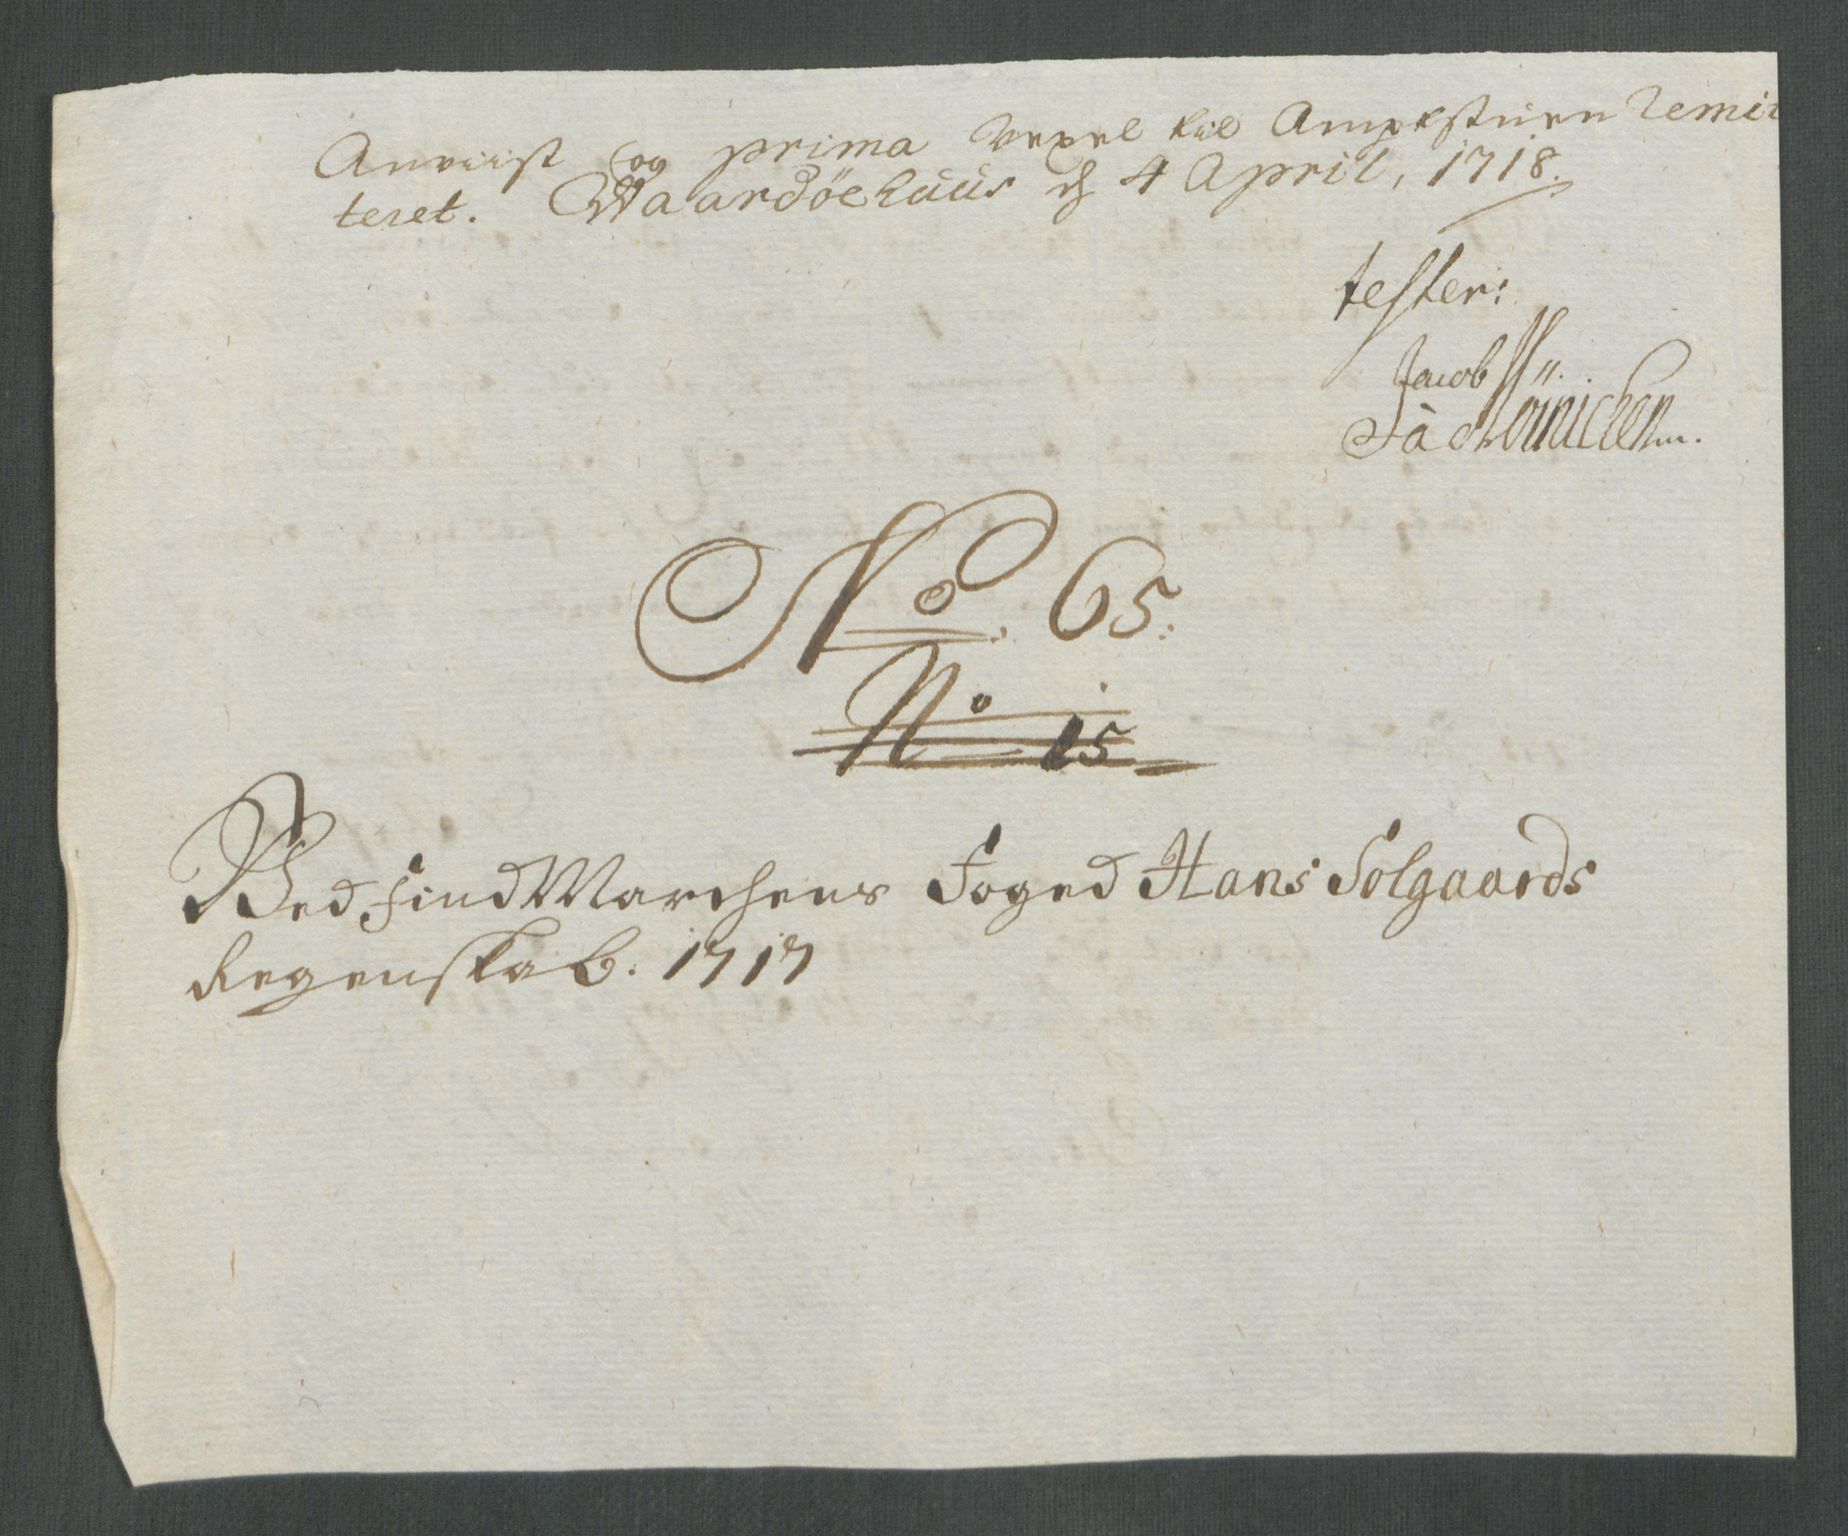 Anviist og prima Vexel til Ampkstuen Remit
teret. Waardöehuus d 4 April, 1718.
tester:
Jacob
No. 65:
No 15
Ved FindMarchens Foged Hans Solgaards
Regenskab. 1717